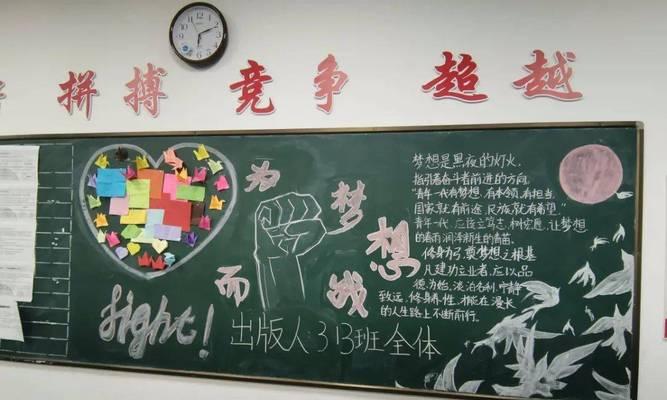 拼搏 竞争 超越
为梦想而战
fight!
出版人:313班全体
梦想是黑夜的灯火,
指引着奋斗者前进的方向
"青年一代有梦想,有本领,有担当,
国家就有前途,民族就有希望。"
青年一代,应匠立笃志,树宏愿,让梦想
的春雨润泽新生的青苗。
修身为弓,
梦想之根基
凡建功立业者,应以品
德为始,淡泊名利,宁静
致远,修身养性,才能在漫长
的人生路上不断前行。